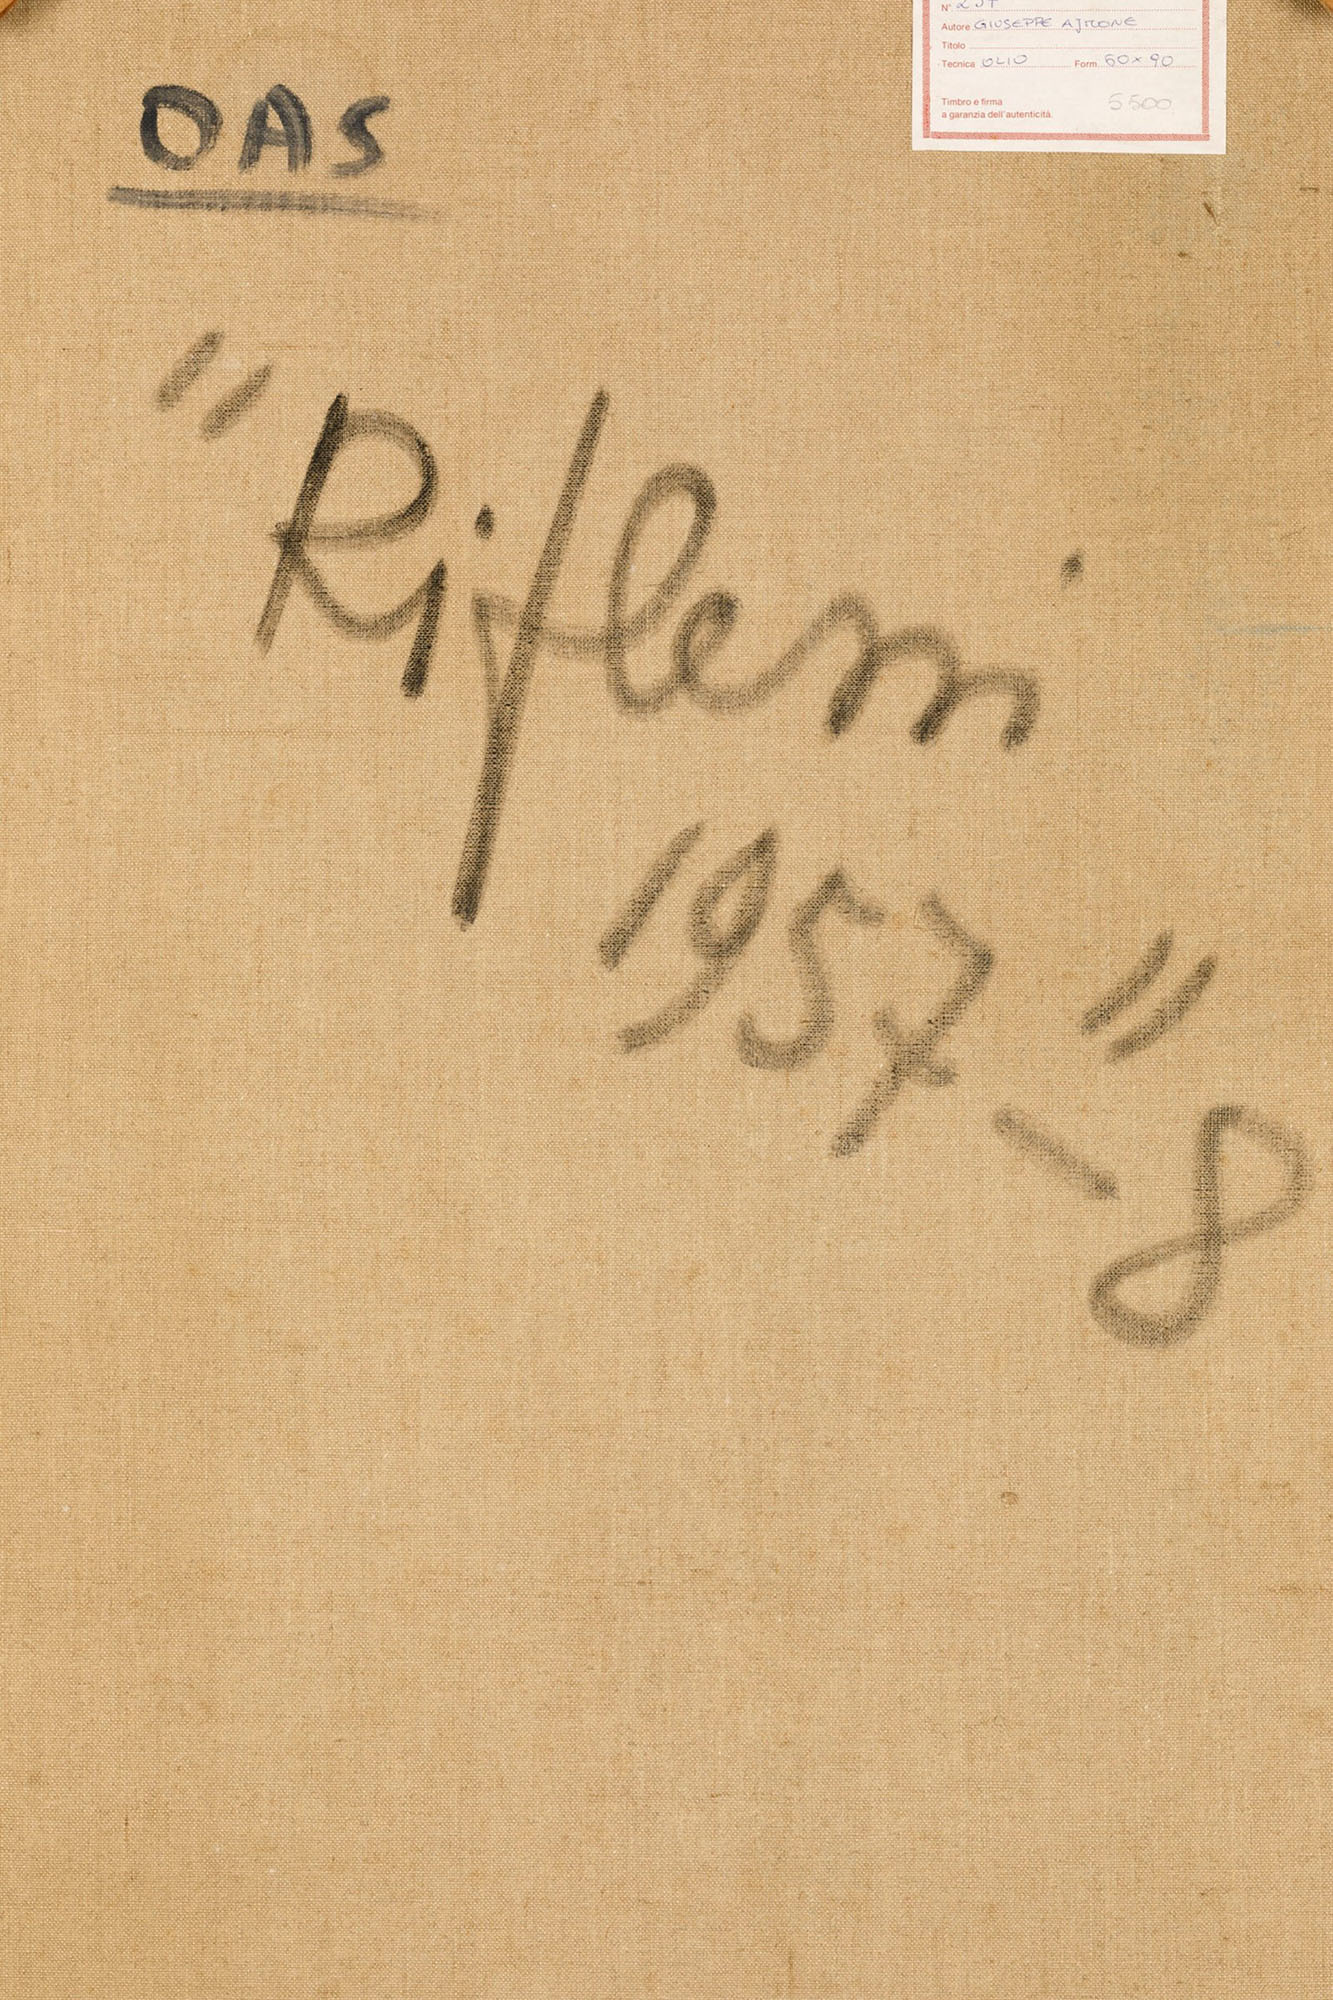 Autore GIUSEPPE AJMONE
Titolo
Tecnica OLIO Form. 60x90
Timbro e firma 5500
a garanzia dell'autenticità.
OAS
"Riflessi
1957-8"